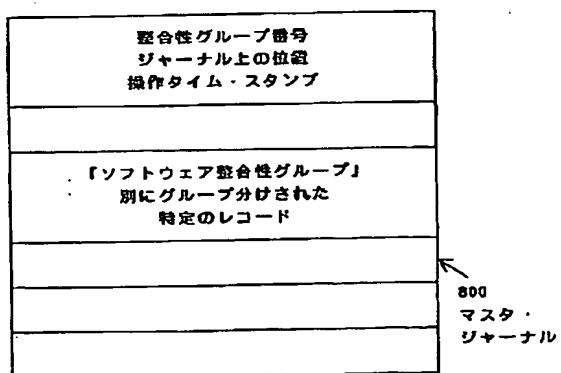 整合性グループ番号
ジャーナル上の位置
操作タイム・スタンプ
『ソフトウェア整合性グループ』
別にグループ分けされた
特定のレコード
800
マスタ・
ジャーナル